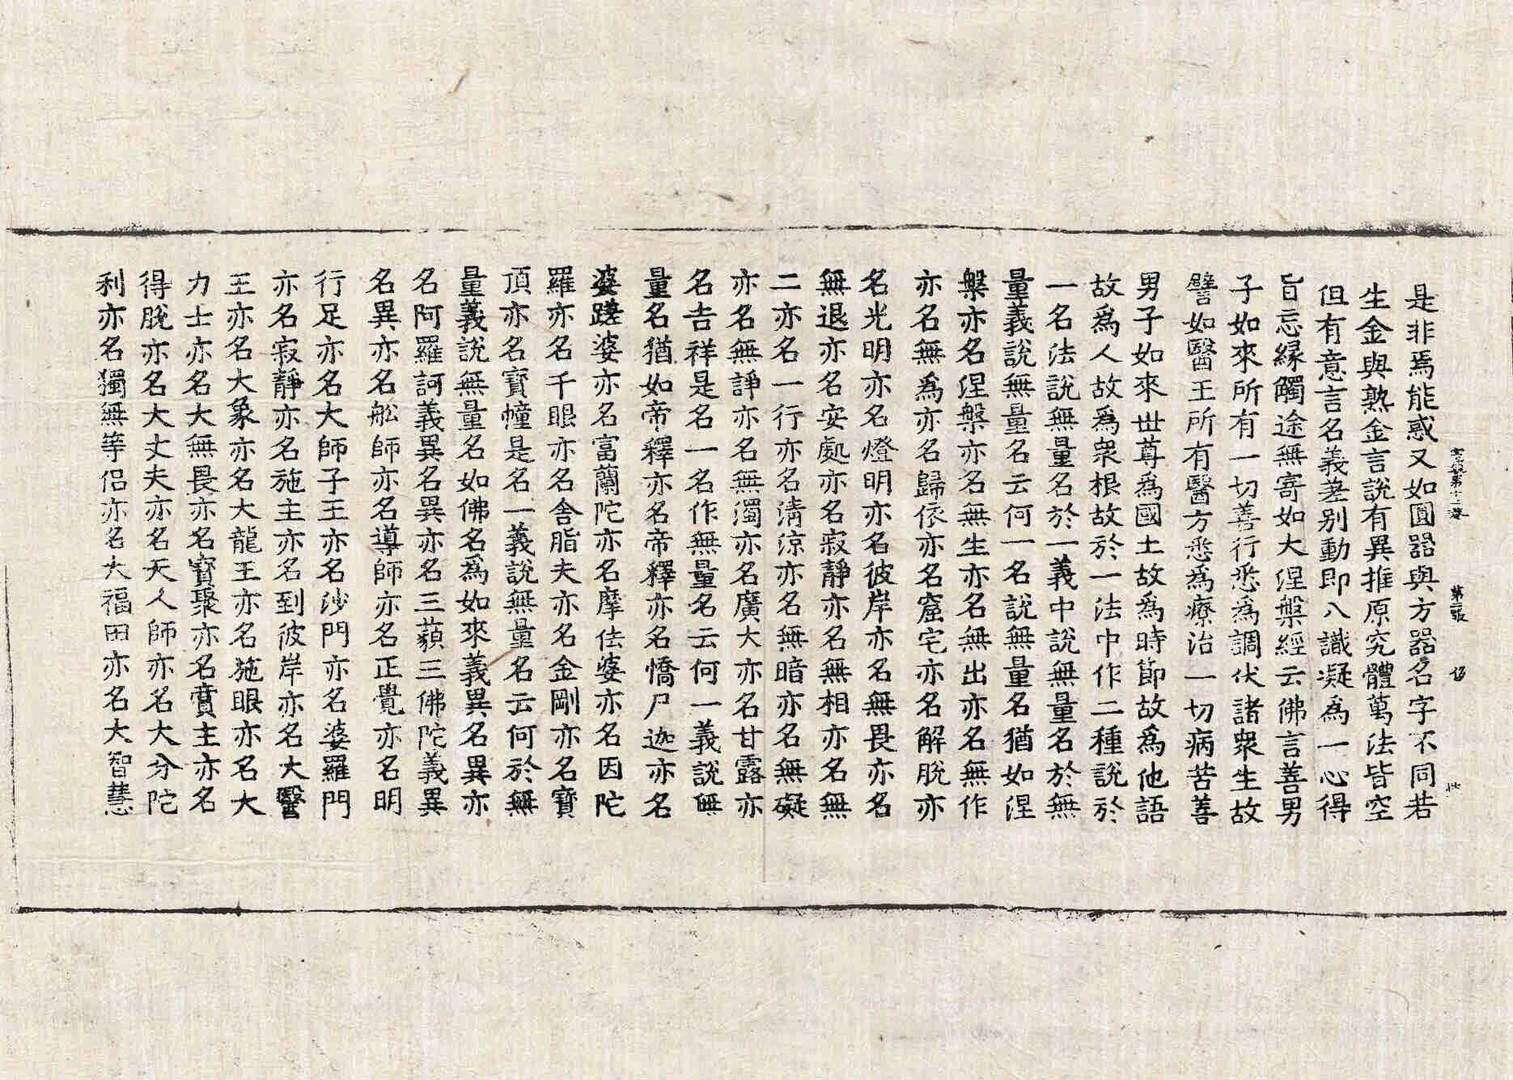 是非焉能惑又如圓器與方器名字不同若
生金與熟金言說有異推原究體萬法皆空
但有意言名義差别動即八識凝為一心得
旨忘緣觸途無寄如大涅槃經云佛言善男
子如來所有一切善行悉為調伏諸衆生故
譬如醫王所有醫方悉為療治一切病苦善
男子如來世尊為國土故為時節故為他語
故為人故為衆根故於一法中作二種說於
一名法說無量名於一義中說無量名於無
量義說無量名云何一名說無量名猶如涅
槃亦名涅槃亦名無生亦名無出亦名無作
亦名無為亦名歸依亦名窟宅亦名解脫亦
名光明亦名燈明亦名彼岸亦名無畏亦名
無退亦名安處亦名寂靜亦名無相亦名無
二亦名一行亦名清涼亦名無暗亦名無礙
亦名無諍亦名無濁亦名廣大亦名甘露亦
名吉祥是名一名作無量名云何一義說無
量名猶如帝釋亦名帝釋亦名憍尸迦亦名
婆蹉婆亦名富蘭陀亦名摩佉婆亦名因陀
羅亦名千眼亦名舍脂夫亦名金剛亦名寶
頂亦名寶幢是名一義說無量名云何於無
量義說無量名如佛名為如來義異名異亦
名阿羅訶義異名異亦名三藐三佛陀義異
名異亦名舩師亦名導師亦名正覺亦名明
行足亦名大師子王亦名沙門亦名婆羅門
亦名寂靜亦名施主亦名到彼岸亦名大醫
王亦名大象亦名大龍王亦名施眼亦名大
力士亦名大無畏亦名寶聚亦名賨主亦名
得脫亦名大丈夫亦名天人師亦名大分陀
利亦名獨無等侶亦名大福田亦名大智慧